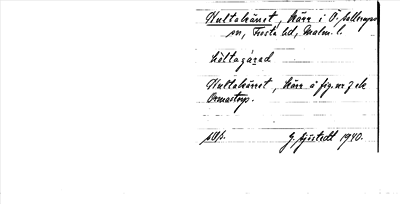 Hultakärret, kärr i Ö. Sallerups
sn, Frosta hd, Malm. l.
Hultakärret, kärr å fig. nr 7 ek
Ormastorp.
G. Sjöstedt 1940.